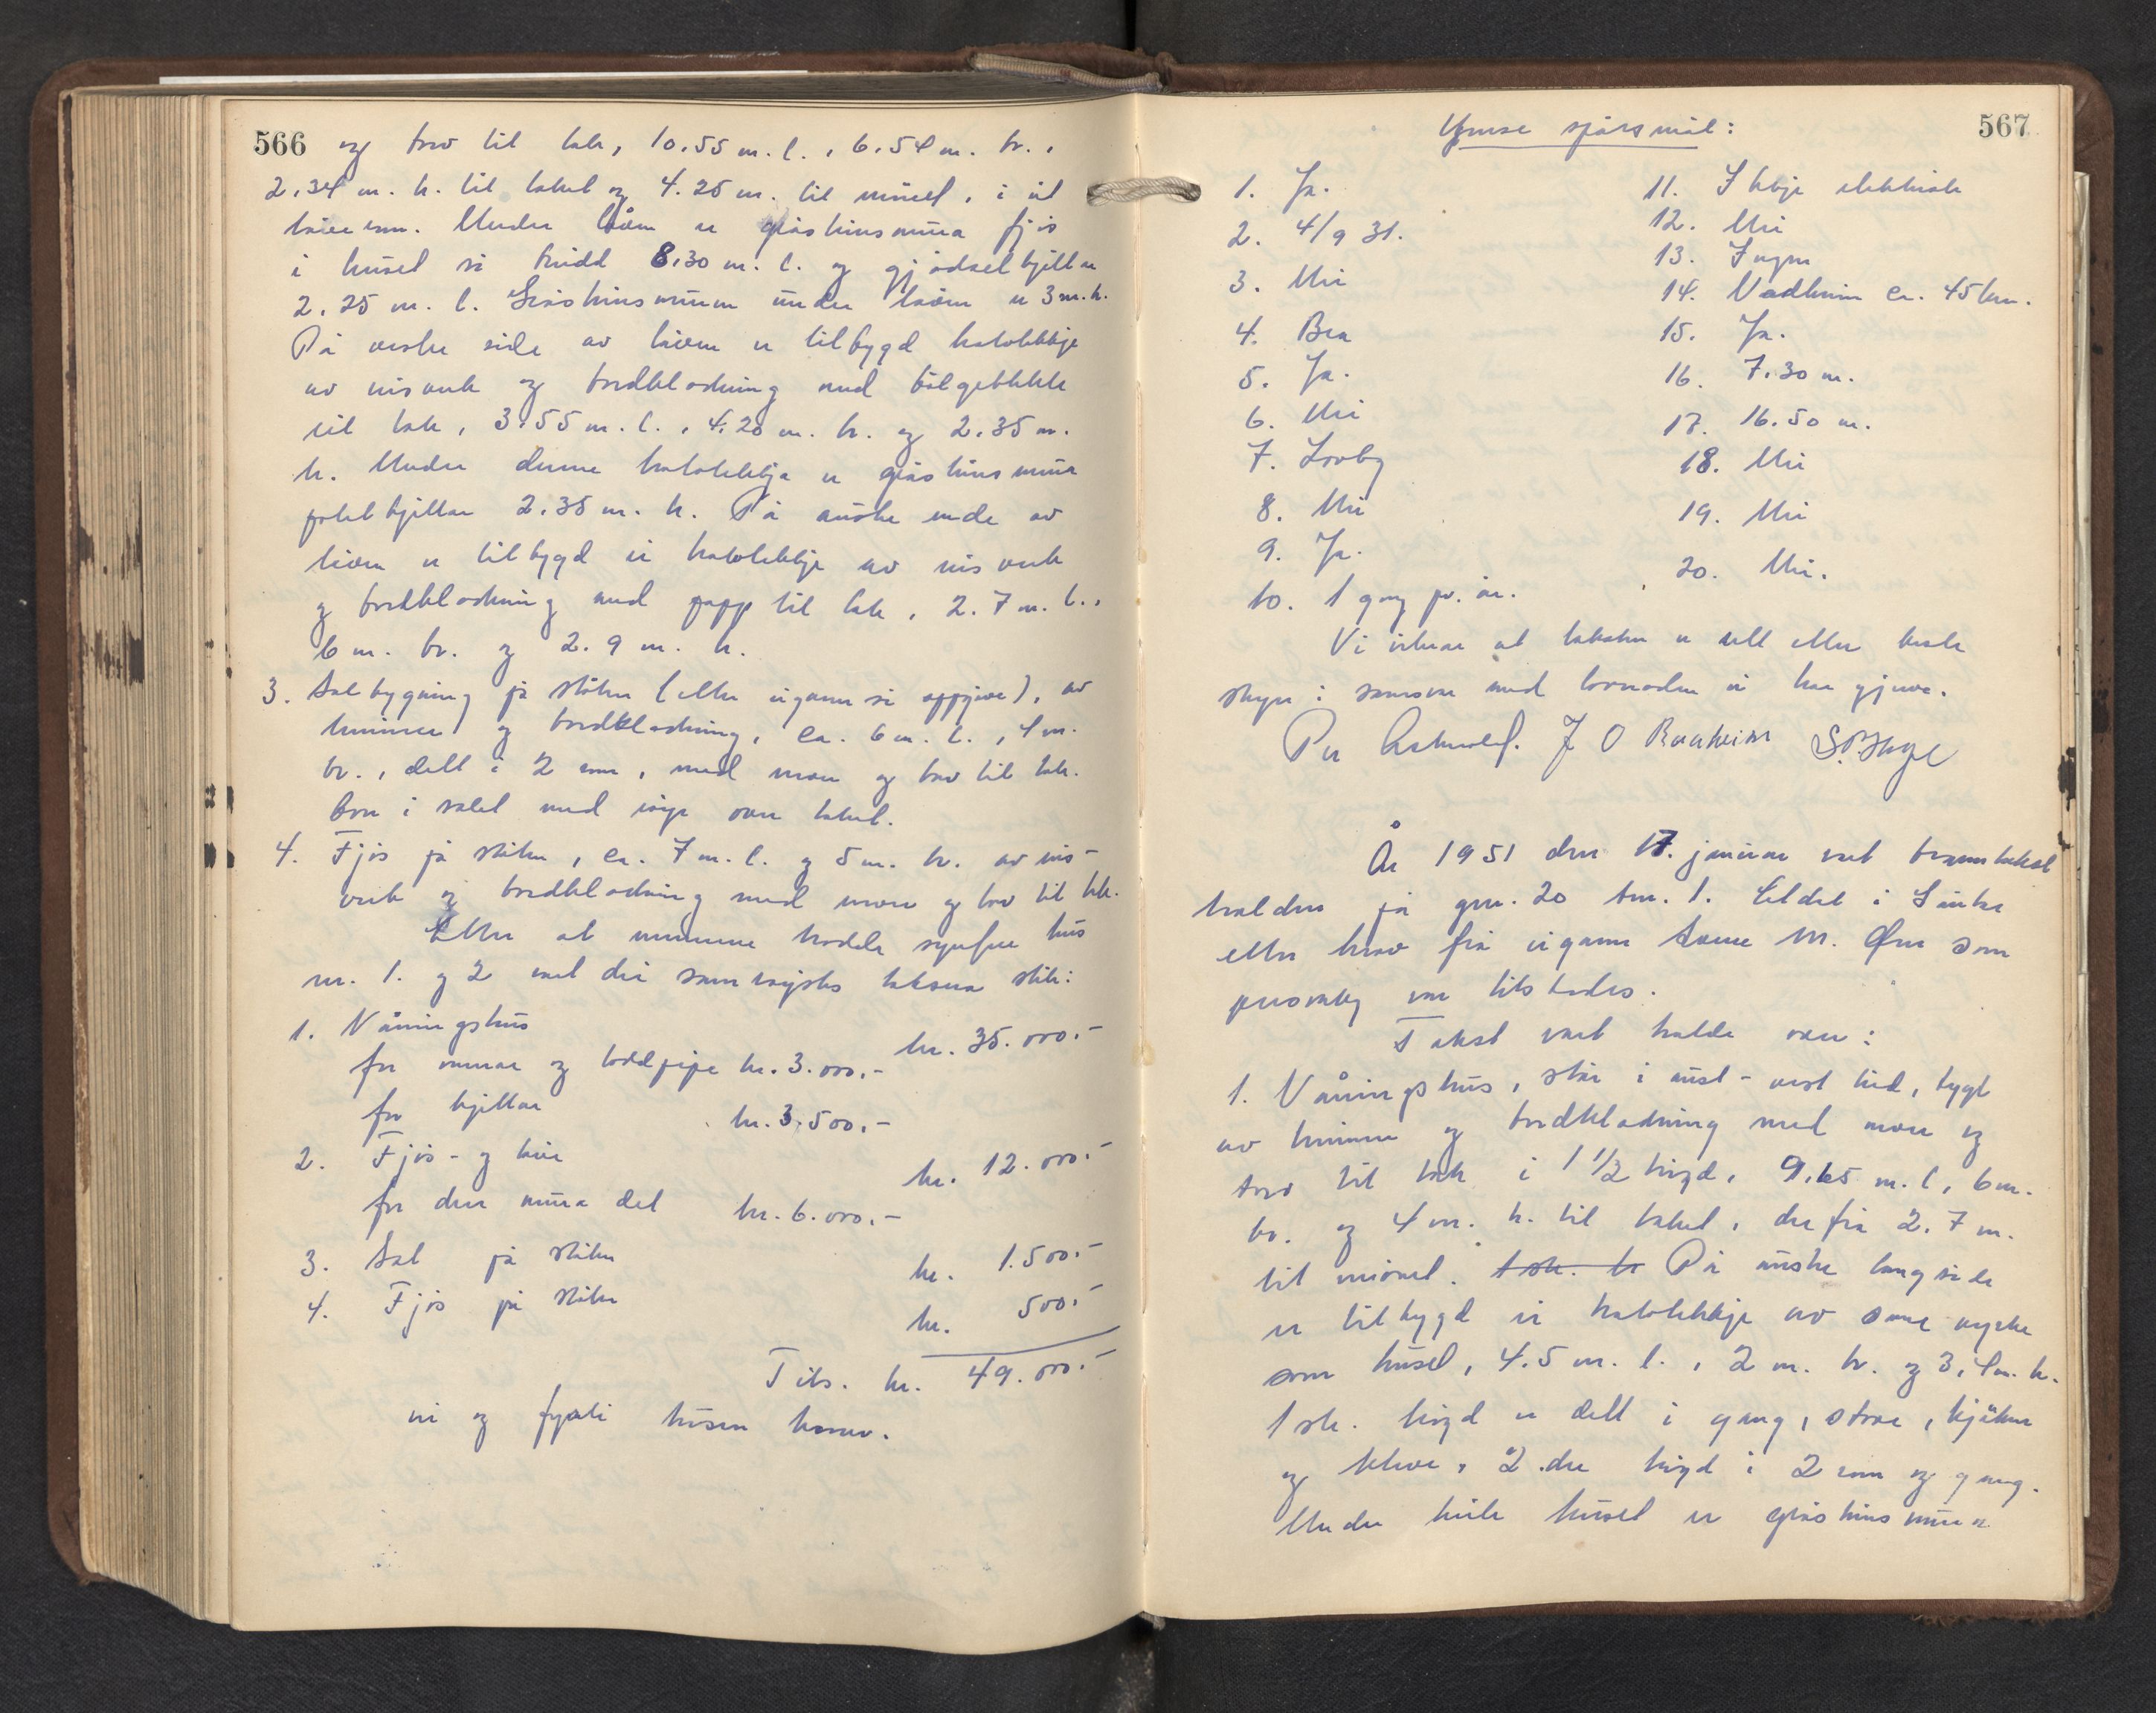 566 og torv til tak, 10.55 m. l., 6.54 m. br.,
2.34 m. h. til taket og 4.25 m. til mønet, i eit
låverom. Under låven er gråsteinsmura fjøs
i huset si breidd 8.30 m. l. og gjødselkjellar
2.25 m. l. Gråsteinsmuren under låven er 3 m. h.
På vestre side av låven er tilbygd halvtekkje
av reisverk og bordkledning med bølgeblekk
til tak, 3.55 m. l., 4.20 m. br. og 2.35 m.
h. Under denne halvtekkja er gråsteinsmura
potetkjellar 2.35 m. h. På austre ende av
låven er tilbygd ei halvtekkje av reisverk
og bordkledning med papp til tak, 2.7 m. l.,
6 m. br. og 2.9 m. h.
3. Selbygning på stølen (etter eigaren si oppgåve), av
timmer og bordkledning, ca. 6 m. l., 4 m.
br., delt i 2 rom, med never og torv til tak.
Omn i selet med røyr over taket.
4. Fjøs på stølen, ca. 7 m. l. og 5 m. br. av reis-
verk og bordkledning med never og torv til tak.
Etter at mennene hadde synfare hus
nr. 1. og 2 vart dei samrøystes taksera slik:
1. Våningshus kr. 35.000.-
for omnar og loddpipe kr. 3.000.-
for kjellar kr. 3.500.-
2. Fjøs- og låve kr. 12.000.-
for den mura del kr. 6.000.-
3. Sel på stølen kr. 1.500.-
4. Fjøs på stølen kr. 500.-
Tils. kr. 49.000.-
ni og fyrti tusen kroner.
567
Ymse spørsmål:
1. Ja.
2. 4/9 31.
3. Nei
4. Bra
5. Ja.
6. Nei
7. Lovleg
8. Nei
9. Ja.
10. 1 gong pr. år.
11. Ikkje elektrisk
12. Nei
13. Ingen
14. Vadheim ca. 45 km.
15. Ja.
16. 7.30 m.
17. 16.50 m.
18. Nei
19. Nei
20. Nei.
Vi vitnar at taksten er sett etter beste
skyn i samsvar med lovnaden vi har gjeve.
Per J O Baaheim
År 1951 den 17. januar vart branntakst
halden på gnr. 20 bnr. 1. Eldal i Gaular
etter krav frå eigaren M. Øen som
personleg var tilstades.
Takst vart halde over:
1. Våningshus, står i aust-vest leid, bygt
av timmer og bordkledning med never og
torv til tak i 1 1/2 høgd, 9.65 m. l, 6 m.
br. og 4 m. h. til taket, derfrå 2.7 m.
til mønet. 1 ste. h På austre langside
er tilbygd ei halvtekkje av same vyrke
som huset, 4.5 m. l., 2 m. br. og 3,4 m. h.
1 ste. høgd er delt i gang, stove, kjøken
og kleve, 2.dre høgd i 2 rom og gang.
Under heile huset er gråsteinsmura